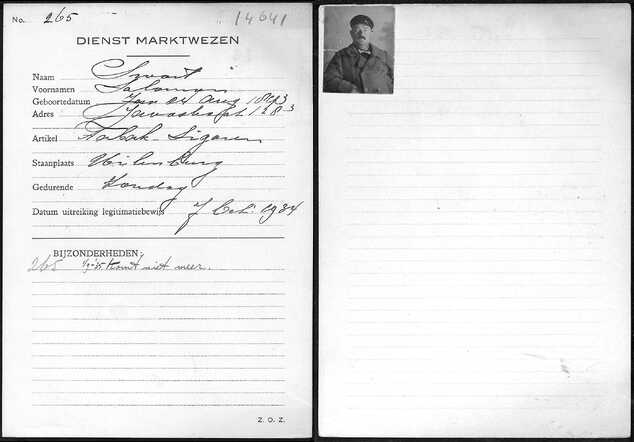 No. 265 14641
DIENST MARKTWEZEN
Naam Swart
Voornamen Salomon
Geboortedatum 24 Aug
Adres
Artikel Tabak - Sigaren
Staanplaats Uilenburg
Gedurende Zondag
Datum uitreiking legitimatiebewijs 1934
BIJZONDERHEDEN:
265 komt niet meer.
Z. O. Z.